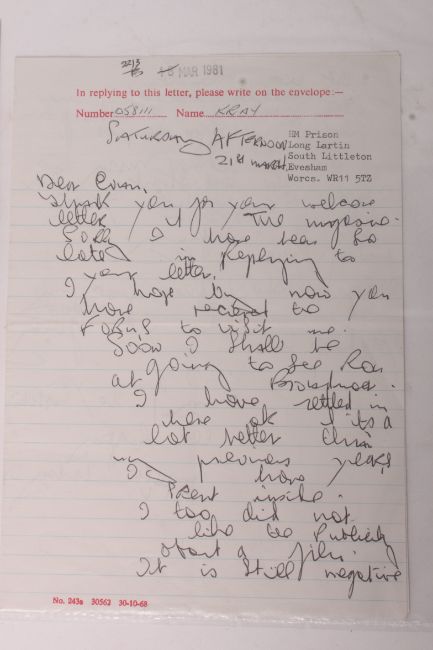 22/3
18 MAR 1981
In replying to this letter, please write on the envelope:—
Number 058111 Name KRAY
SATURDAY AFTERNOON
21st MARCH
HM Prison
Long Lartin
South Littleton
Evesham
Worcs. WR11 5TZ
Dear
Thank you for your welcome
letter & The magazine.
Sorry I have been so
late in Replying to
your letter.
I hope by now you
have recieved the
FORMS to visit me.
Soon I shall be
going to see Ron
at Broadmoor.
I have settled in
here ok & its a
lot better than
previous years
I have
spent inside.
I too did not
like the Publicity
about a film.
It is still negative
No. 243a 30562 30-10-68